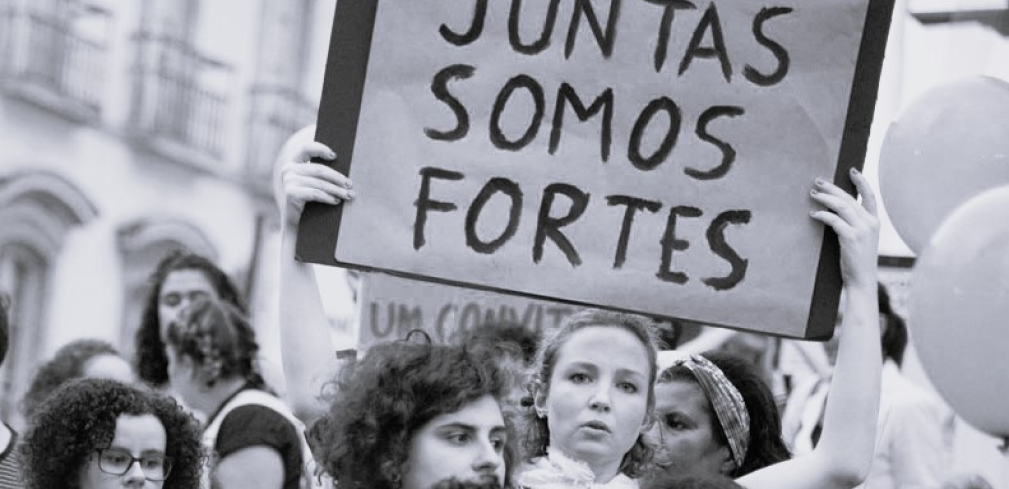 JUNTAS
SOMOS
FORTES
UM CONVIT